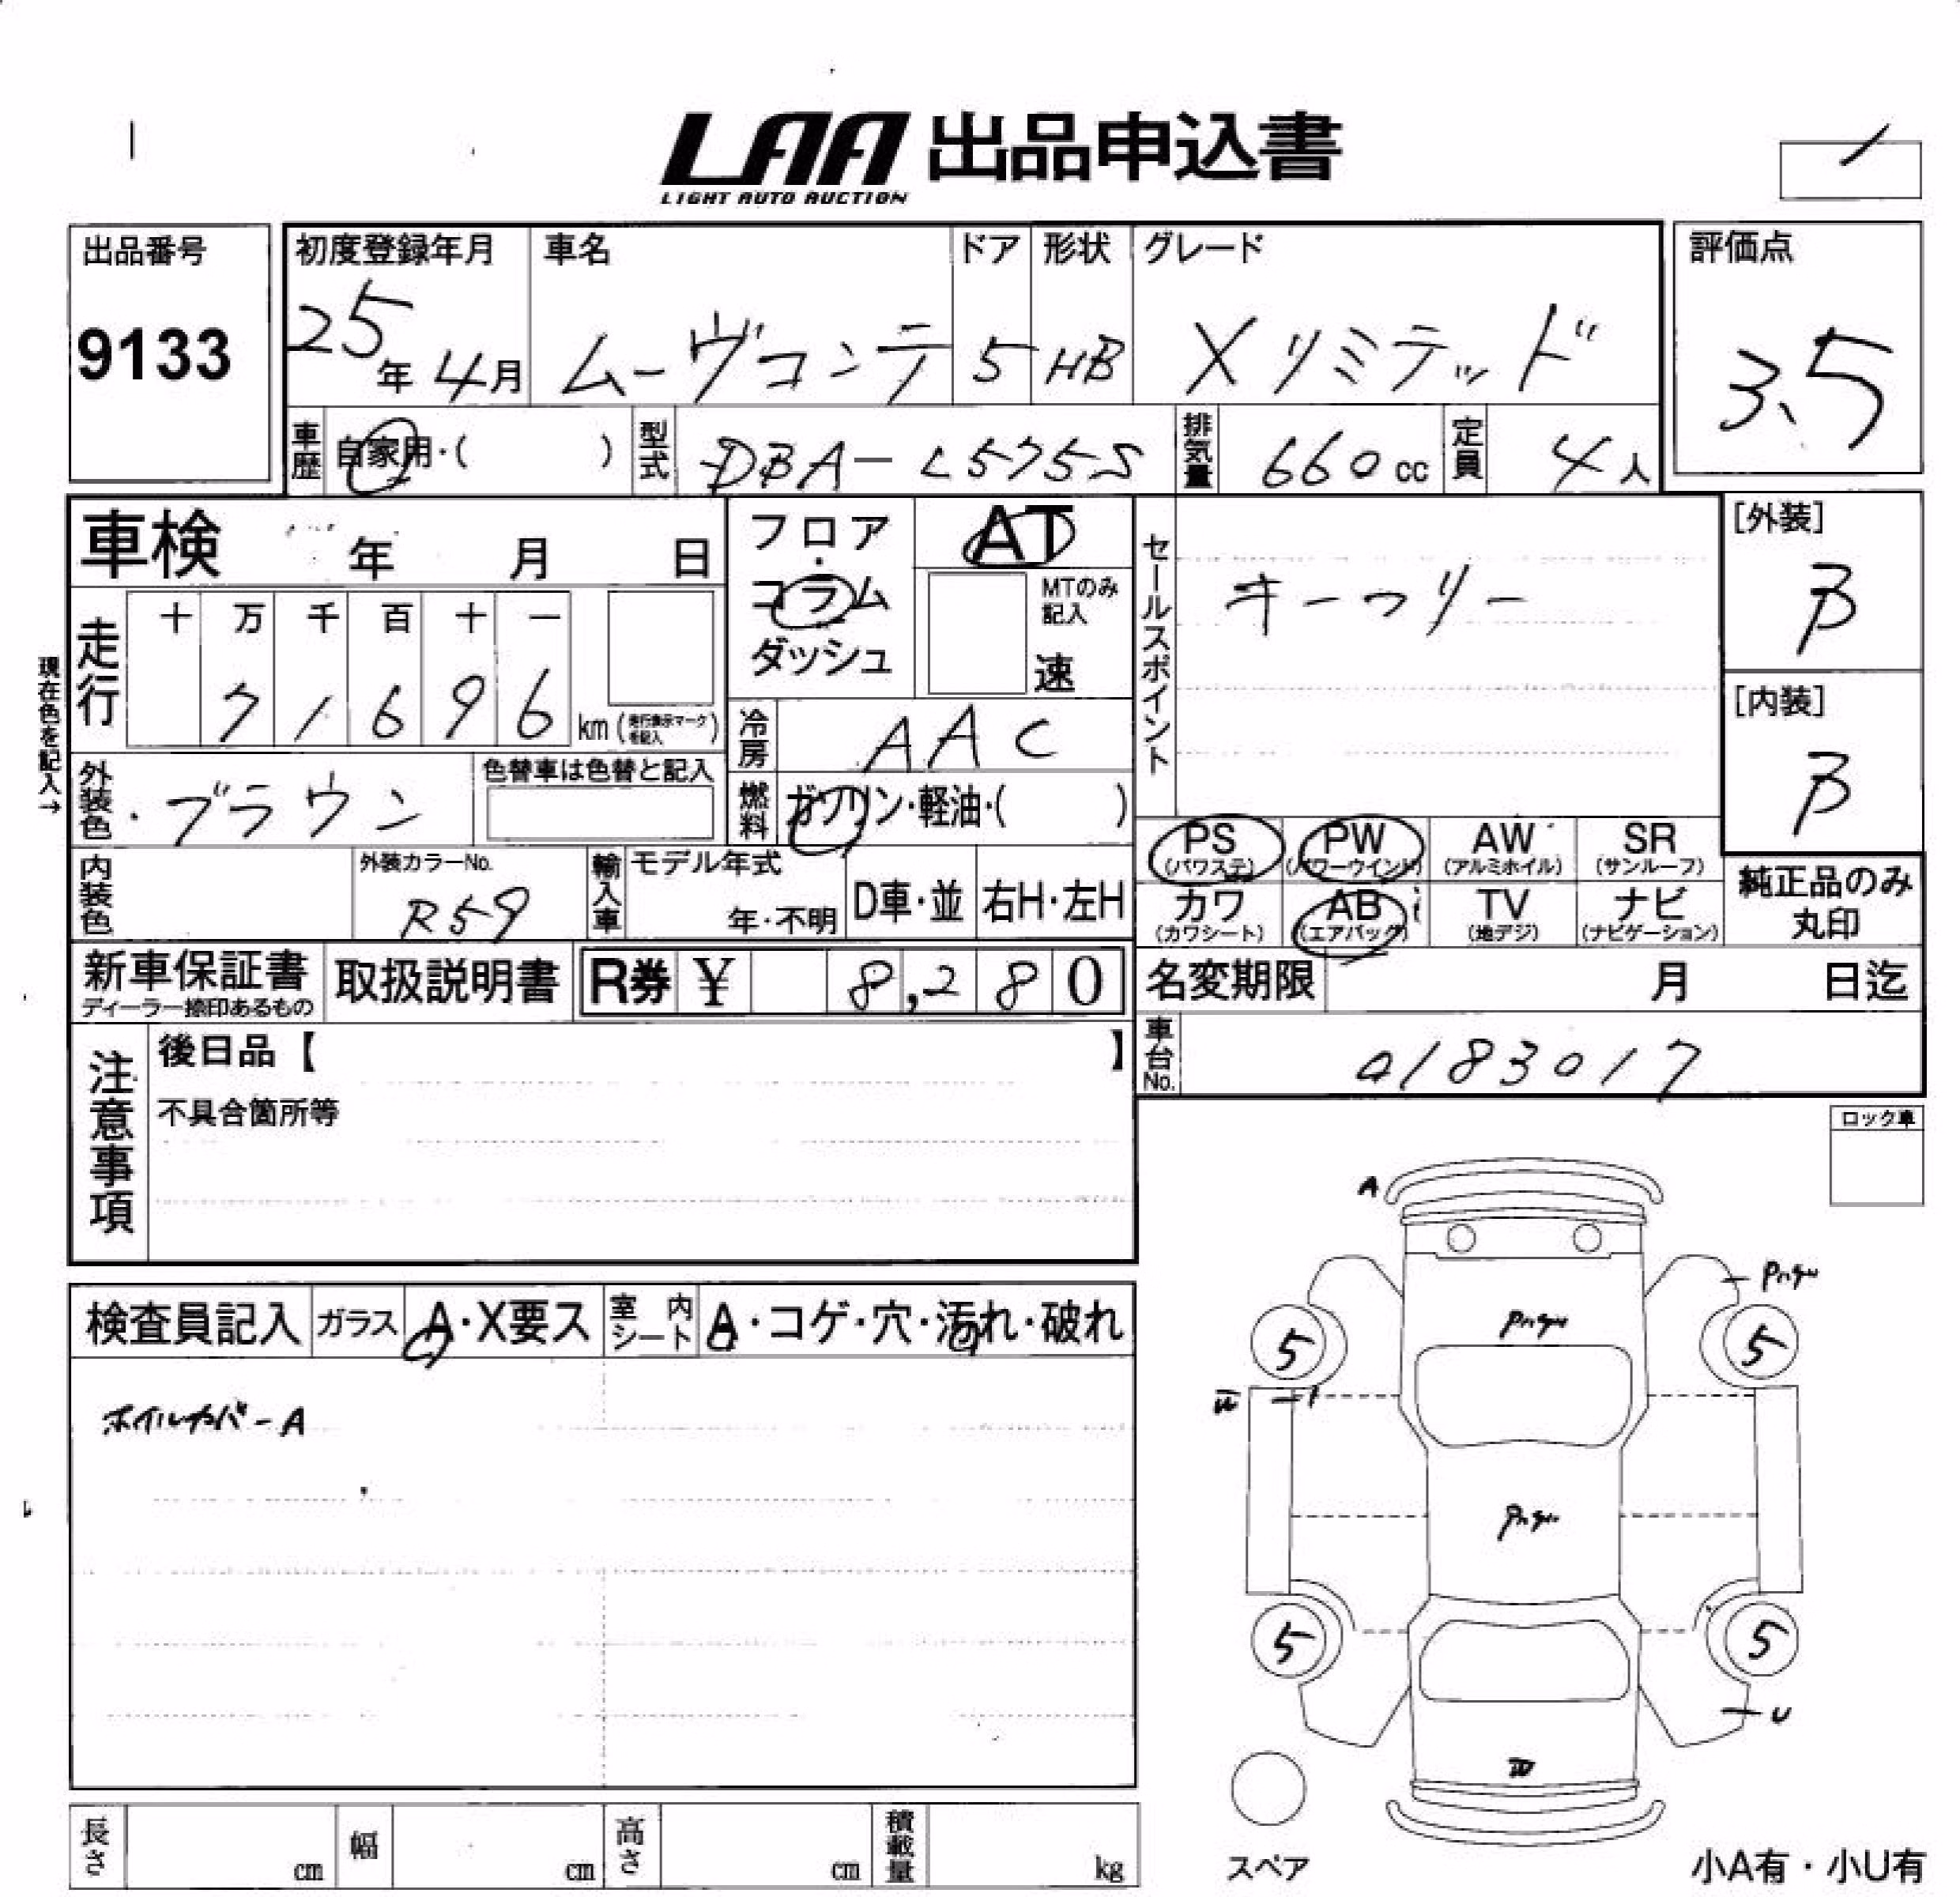 LAA 出品申込書
LIGHT AUTO AUCTION
出品番号
9133
初度登録年月
25年 4月
車名
ムーヴコンテ
ドア
5
形状
HB
グレード
Xリミテッド
評価点
3.5
車歴
自家用・( )
型式
DBA-L575S
排気量
660cc
定員
4人
車検 年 月 日
フロア・コラム
ダッシュ
AT
MTのみ
記入
速
セールスポイント
キーフリー
[外装]
B
[内装]
B
現在色を記入→
走行
十 万 千 百 十 一
7 1 6 9 6 km (走行表示マークを記入)
冷房
AAC
外装色
ブラウン
色替車は色替と記入
燃料
ガソリン・軽油・( )
PS
(パワステ)
PW
(パワーウインド)
AW
(アルミホイル)
SR
(サンルーフ)
カワ
(カワシート)
AB
(エアバッグ)
TV
(地デジ)
ナビ
(ナビゲーション)
純正品のみ
丸印
内装色
外装カラーNo.
R59
輸入車
モデル年式
年・不明
D車・並
右H・左H
新車保証書
ディーラー捺印あるもの
取扱説明書
R券 ¥ 8,280
名変期限 月 日迄
車台No.
0183017
注意事項
後日品【 】
不具合箇所等
ロック車
検査員記入
ガラス
A・X要ス
室内
シート
A・コゲ・穴・汚れ・破れ
ホイルカバーA
A
5
5
5
5
U
スペア
小A有・小U有
長さ cm
幅 cm
高さ cm
積載量 kg